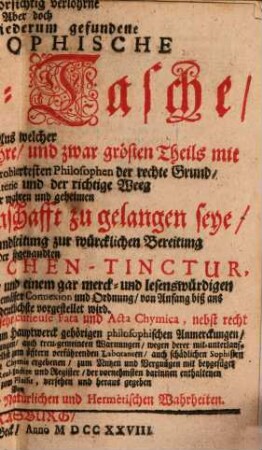 verlohrne
Aber doch
iederum gefundene
OPHISCHE
Tasche/
Aus welcher
hre/ und zwar grösten Theils mit
robirtesten Philosophen der rechte Grund/
terie und der richtige Weeg
r wahren und geheimen
nschafft zu gelangen seye/
ndleitung zur würcklichen Bereitung
der sogenandten
CHEN-TINCTUR,
und einem gar merck- und lesenswürdigen
Connexion und Ordnung/ von Anfang biß ans
deutlichste vorgestellet wird.
curieuse Fata und Acta Chymica, nebst recht
um Hauptwerck gehörigen philosophischen Anmerckungen/
auch treu-gemeinten Warnungen/ wegen derer
öffters verführenden Laboranten/ auch schädlichen Sophisten
Chymie ergeben/ zum Nutzen und Vergnügen mit beygefügtem
und Register/ der vornehmsten darinnen enthaltenen
Fleiß, versehen und heraus gegeben
Von
Natürlichen und Hermetischen Wahrheiten.
RASBURG/
Beck/ Anno M DCC XXVIII.